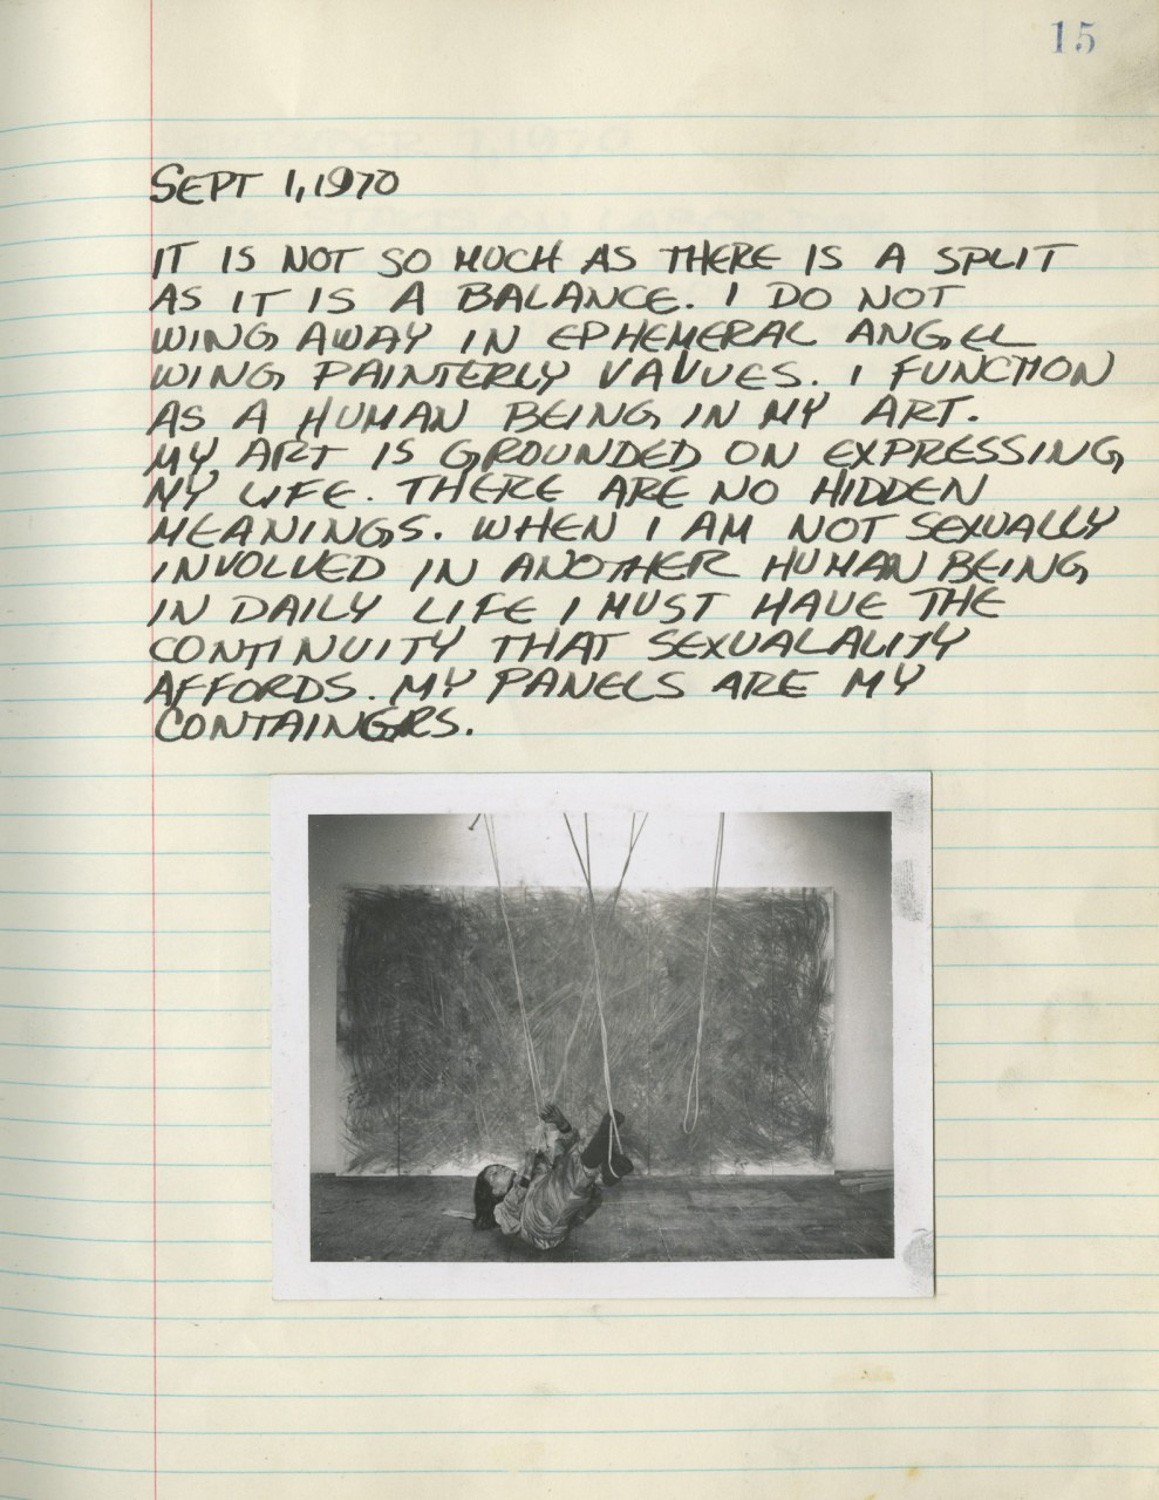 15
SEPT 1, 1970
IT IS NOT SO MUCH AS THERE IS A SPLIT
AS IT IS A BALANCE. I DO NOT
WING AWAY IN EPHEMERAL ANGEL
WING PAINTERLY VAVUES. I FUNCTION
AS A HUMAN BEING IN MY ART.
MY ART IS GROUNDED ON EXPRESSING
MY LIFE. THERE ARE NO HIDDEN
MEANINGS. WHEN I AM NOT SEXUALLY
INVOLVED IN ANOTHER HUMAN BEING
IN DAILY LIFE I MUST HAVE THE
CONTINUITY THAT SEXUALALITY
AFFORDS. MY PANELS ARE MY
CONTAINERS.